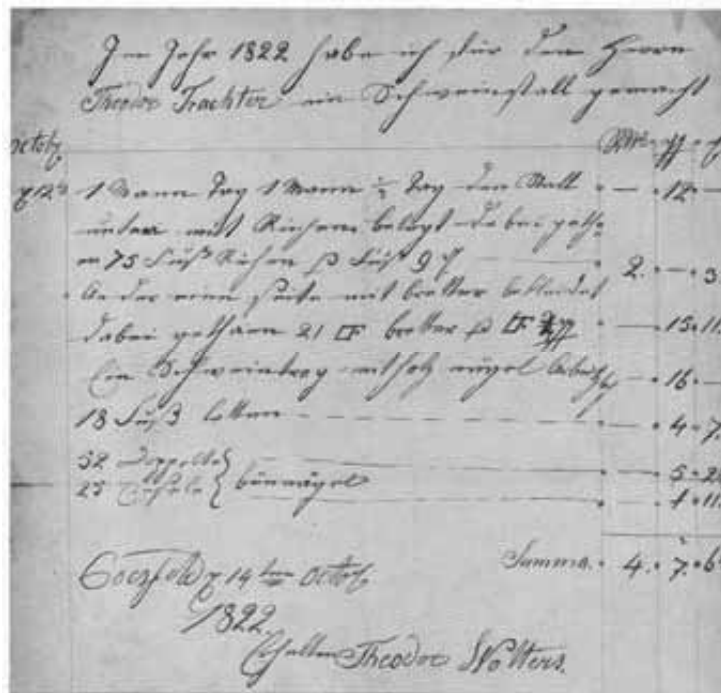 Im Jahr 1822 habe ich für den Herrn
Theodor Trachter ein Schweinstall gemacht
October
1 Mann Tag 1 Mann ½ Tag den Stall — 12 —
unten mit belegt dabei geth
an 75 Fuß p Fuß 9 2. — 3
An der eine seite mit bretter bekleidet
dabei gethaan 21 bretter p — 15. 11
Ein Schweintrog nägel — 16 —
18 Fuß latten — 4. 7
52 Doppelte — 5. 2
25 — 1. 11
Summa. 4. 7. 6
Coesfeld 14ten Octob.
1822.
Erhalten Theodor Wolters.